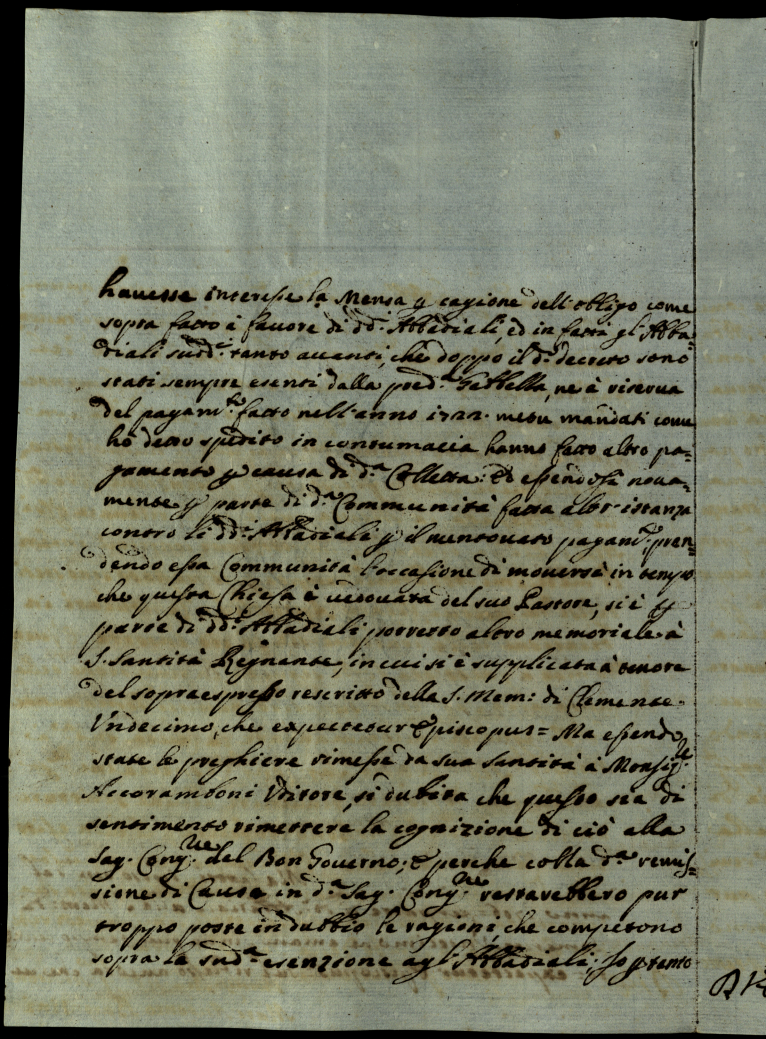 havesse interesse la Mensa p cagione dell'obligo come
sopra fatto à favore di dd.i Abbadiali, ed in fatti gl'Abba=
diali sudd.i tanto avanti, che doppo il d.o decreto sono
stati sempre esenti dalla pred.a Gabbella, ne à riserva
del pagam.to fatto nell'anno 1722. metu mandati come
hò detto spedito in contumacia hanno fatto altro pa=
gamento p causa di d.a Colletta: Ed essendosi nova=
mente p parte di d.a Communità fatta altr'istanza
contro li dd.i Abbadiali p il mentovato pagam.to pren=
dendo essa Communità l'occasione di moversi in tempo
che questa Chiesa è vedovata del suo Pastore, si è p
parte di dd.i Abbadiali porretto altro memoriale à
S. Santità Regnante, in cui si è supplicata à tenore
del sopraespresso rescritto della S. Mem: di Clemente
Undecimo, che expectetur Episcopus= Ma essendo
state le preghiere rimesse da sua Santità à Monsig.re
Accoramboni Uditore, si dubita che questo sia di
sentimento rimettere la cognizione di ciò alla
Sag. Cong.ne del Bon Governo; E perche colla d.a remis=
sione di Causa in d.a Sag. Cong.ne restarebbero pur
troppo poste in dubbio le ragioni, che competono
sopra la sud.a esenzione agl'Abbadiali. Io p tanto